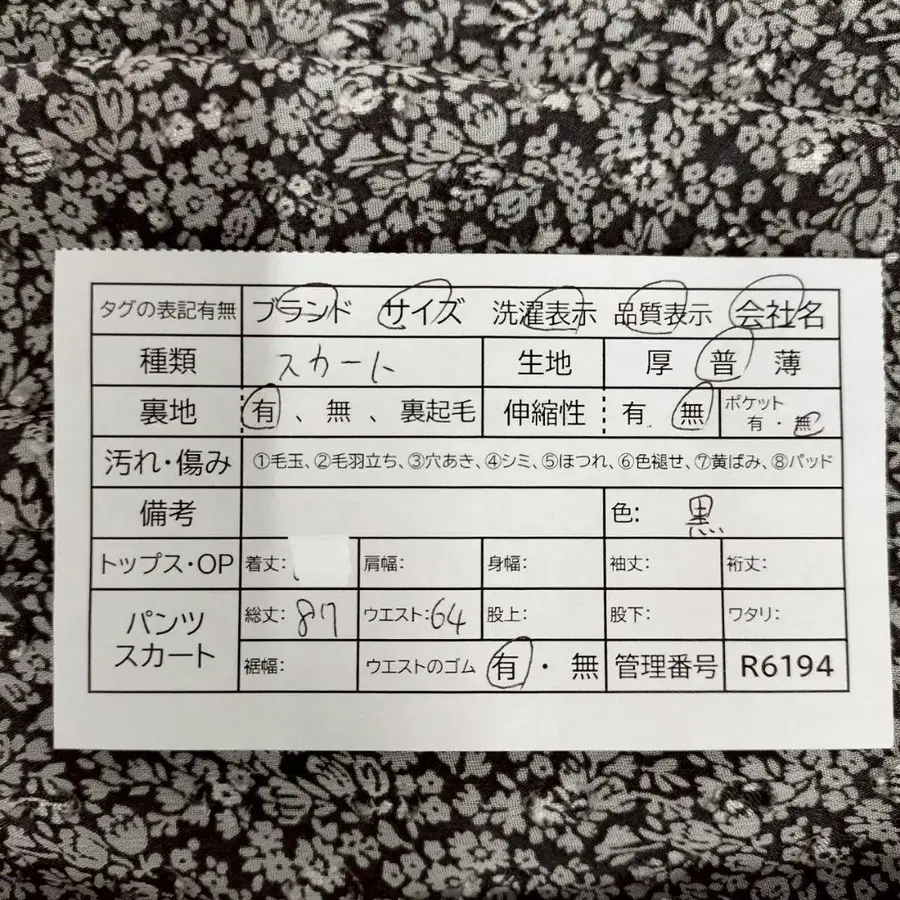 タグの表記有無 ブランド サイズ 洗濯表示 品質表示 会社名
種類 スカート 生地 厚 普 薄
裏地 有 、 無 、 裏起毛 伸縮性 有 無 ポケット 有・無
汚れ・傷み ①毛玉、②毛羽立ち、③穴あき、④シミ、⑤ほつれ、⑥色褪せ、⑦黄ばみ、⑧パッド
備考 色: 黒
トップス・OP 着丈: 肩幅: 身幅: 袖丈: 裄丈:
パンツ スカート 総丈: 87 ウエスト: 64 股上: 股下: ワタリ:
裾幅: ウエストのゴム 有・無 管理番号 R6194